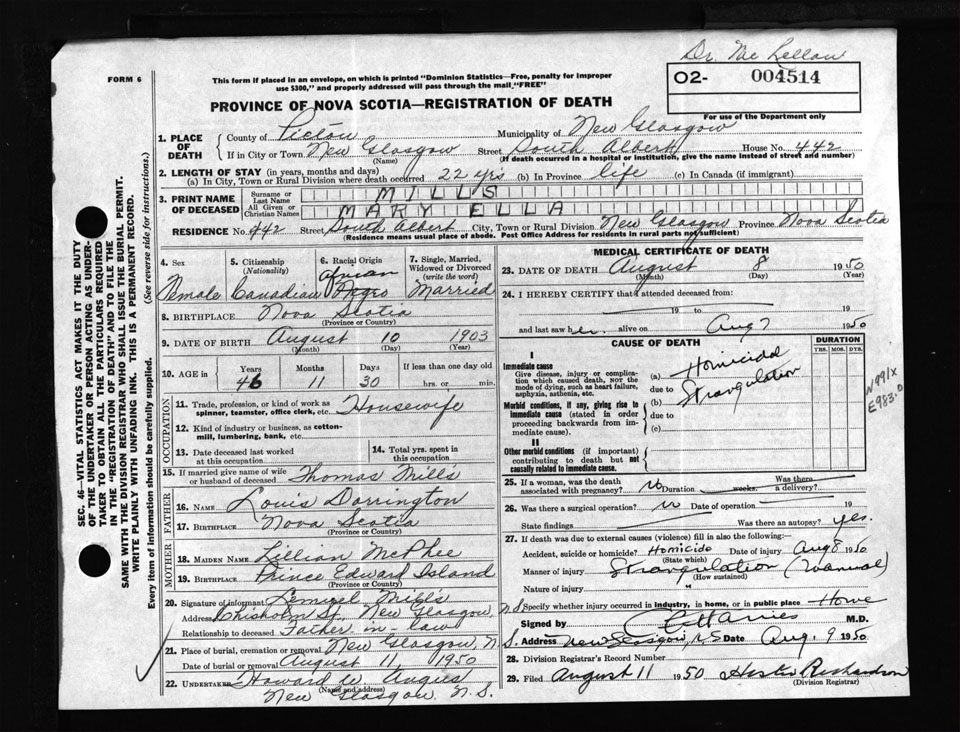 Dr. McLellan
FORM 6
This form if placed in an envelope, on which is printed "Dominion Statistics—Free, penalty for improper
use $300," and properly addressed will pass through the mail "FREE"
O2- 004514
For use of the Department only
PROVINCE OF NOVA SCOTIA—REGISTRATION OF DEATH
1. PLACE OF DEATH
County of Pictou Municipality of New Glasgow
If in City or Town New Glasgow (Name) Street South Albert House No. 442
(If death occurred in a hospital or institution, give the name instead of street and number)
2. LENGTH OF STAY (in years, months and days)
(a) In City, Town or Rural Division where death occurred 22 yrs (b) In Province life (c) In Canada (if immigrant)
3. PRINT NAME OF DECEASED
Surname or Last Name MILLS
All Given or Christian Names MARY ELLA
RESIDENCE No. 442 Street South Albert City, Town or Rural Division New Glasgow Province Nova Scotia
(Residence means usual place of abode. Post Office Address for residents in rural parts not sufficient)
4. Sex Female
5. Citizenship (Nationality) Canadian
6. Racial Origin African Negro
7. Single, Married, Widowed or Divorced (write the word) Married
8. BIRTHPLACE Nova Scotia
(Province or Country)
9. DATE OF BIRTH August 10 1903
(Month) (Day) (Year)
10. AGE Years 46 Months 11 Days 30 If less than one day old hrs. or min.
OCCUPATION
11. Trade, profession or kind of work as spinner, teamster, office clerk, etc. Housewife
12. Kind of industry or business, as cotton-mill, lumbering, bank, etc.
13. Date deceased last worked at this occupation
14. Total yrs. spent in this occupation
15. If married give name of wife or husband of deceased Thomas Mills
FATHER
16. NAME Louis Dorrington
17. BIRTHPLACE Nova Scotia
MOTHER
18. MAIDEN NAME Lillian McPhee
19. BIRTHPLACE Prince Edward Island
(Province or Country)
20. Signature of informant Lemuel Mills
Address Chisholm St., New Glasgow, N.S.
Relationship to deceased Father in law
21. Place of burial, cremation or removal New Glasgow N.S.
Date of burial or removal August 11, 1950
22. UNDERTAKER Howard W. 
(Name and address)
New Glasgow N.S.
MEDICAL CERTIFICATE OF DEATH
23. DATE OF DEATH August 8 1950
(Month) (Day)
24. I HEREBY CERTIFY that I attended deceased from
19 to 19
and last saw her alive on Aug 7 1950
CAUSE OF DEATH
DURATION
YRS. MOS. DYS.
I
Immediate cause
Give disease, injury or complication which caused death, NOT the mode of dying, such as heart failure, asphyxia, asthenia, etc.
(a) Homicidal
due to Strangulation
(b)
Morbid conditions, if any, giving rise to immediate cause (stated in order proceeding backwards from immediate cause).
due to
(c)
II
Other morbid conditions (if important) contributing to death but not causally related to immediate cause.
N991X
E983.0
25. If a woman, was the death associated with pregnancy? no Duration weeks. Was there a delivery?
26. Was there a surgical operation? no Date of operation 19
State findings Was there an autopsy? yes.
27. If death was due to external causes (violence) fill in also the following:
Accident, suicide or homicide? Homicide Date of injury Aug 8 1950
(State which)
Manner of injury Strangulation (Manual)
(How sustained)
Nature of injury
Specify whether injury occurred in industry, in home, or in public place Home
Signed by M.D.
Address New Glasgow, N.S. Date Aug. 9 1950
28. Division Registrar's Record Number
29. Filed August 11 1950 Richardson
(Division Registrar)
SEC. 46—VITAL STATISTICS ACT MAKES IT THE DUTY
OF THE UNDERTAKER OR PERSON ACTING AS UNDERTAKER
TO OBTAIN ALL THE PARTICULARS REQUIRED
IN THE "REGISTRATION OF DEATH" AND TO FILE THE
SAME WITH THE DIVISION REGISTRAR WHO SHALL ISSUE THE BURIAL PERMIT.
WRITE PLAINLY WITH UNFADING INK. THIS IS A PERMANENT RECORD.
Every item of information should be carefully supplied. (See reverse side for instructions.)